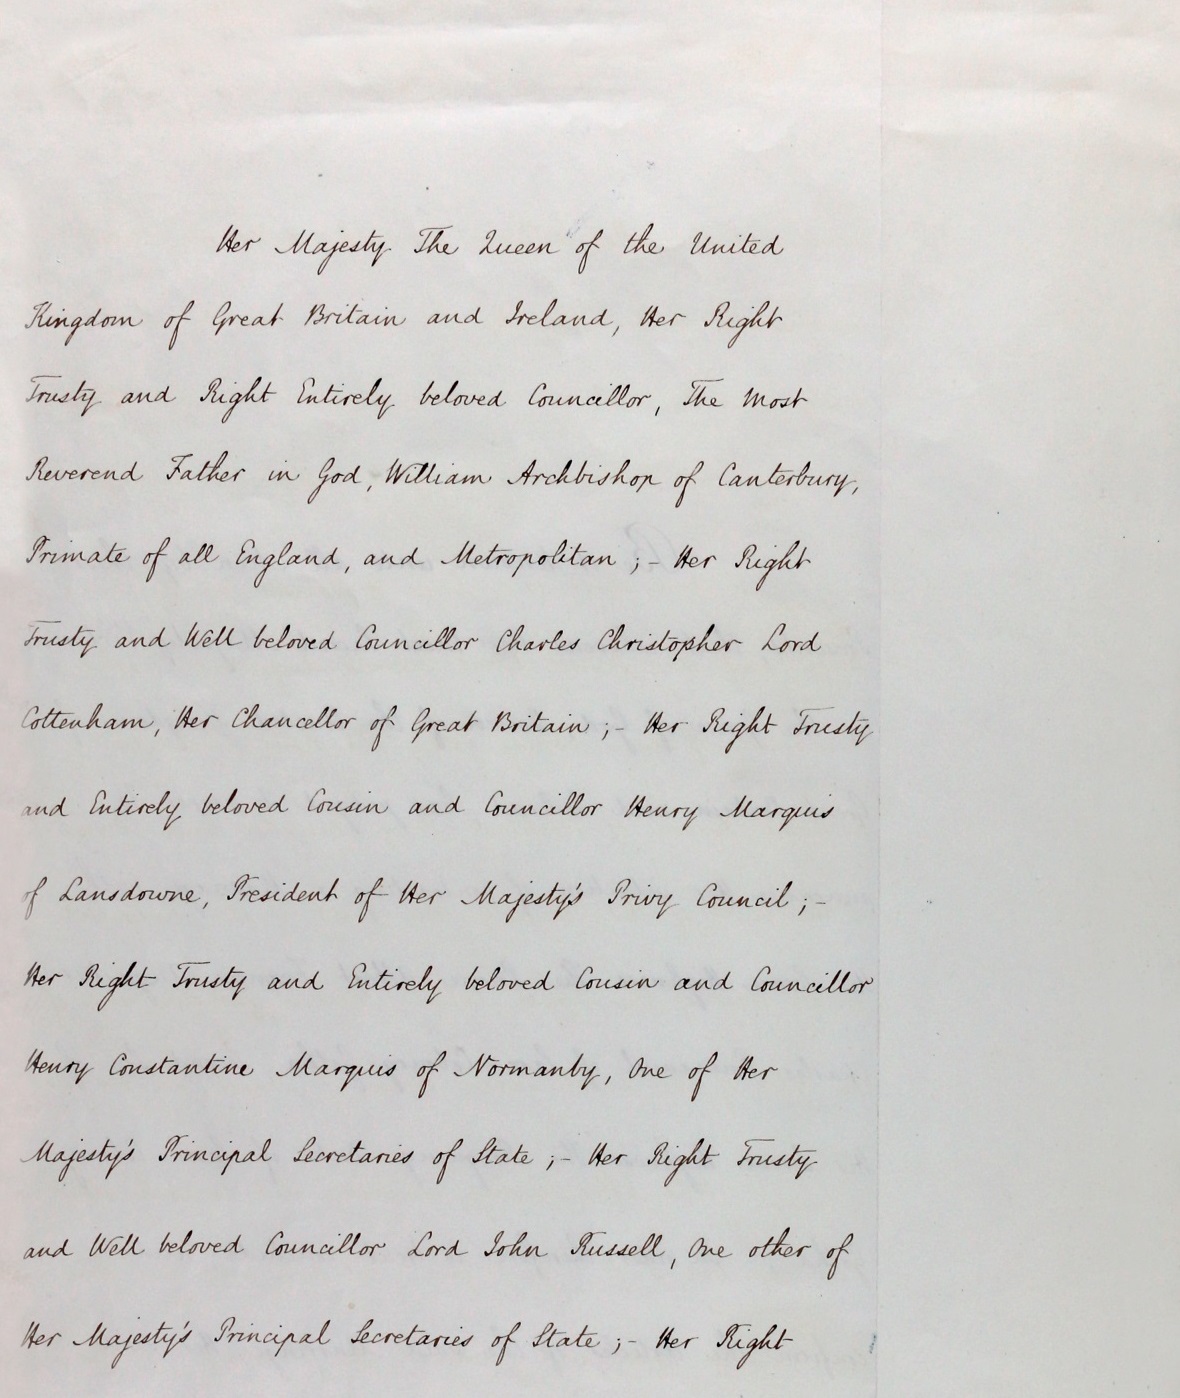 Her Majesty The Queen of the United
Kingdom of Great Britain and Ireland, Her Right
Trusty and Right Entirely beloved Councillor, The Most
Reverend Father in God, William Archbishop of Canterbury,
Primate of all England, and Metropolitan ;- Her Right
Trusty and Well beloved Councillor Charles Christopher Lord
Cottenham, Her Chancellor of Great Britain ;- Her Right Trusty
and Entirely beloved Cousin and Councillor Henry Marquis
of Lansdowne, President of Her Majesty's Privy Council ;-
Her Right Trusty and Entirely beloved Cousin and Councillor
Henry Constantine Marquis of Normanby, One of Her
Majesty's Principal Secretaries of State ;- Her Right Trusty
and Well beloved Councillor Lord John Russell, One other of
Her Majesty's Principal Secretaries of State ;- Her Right